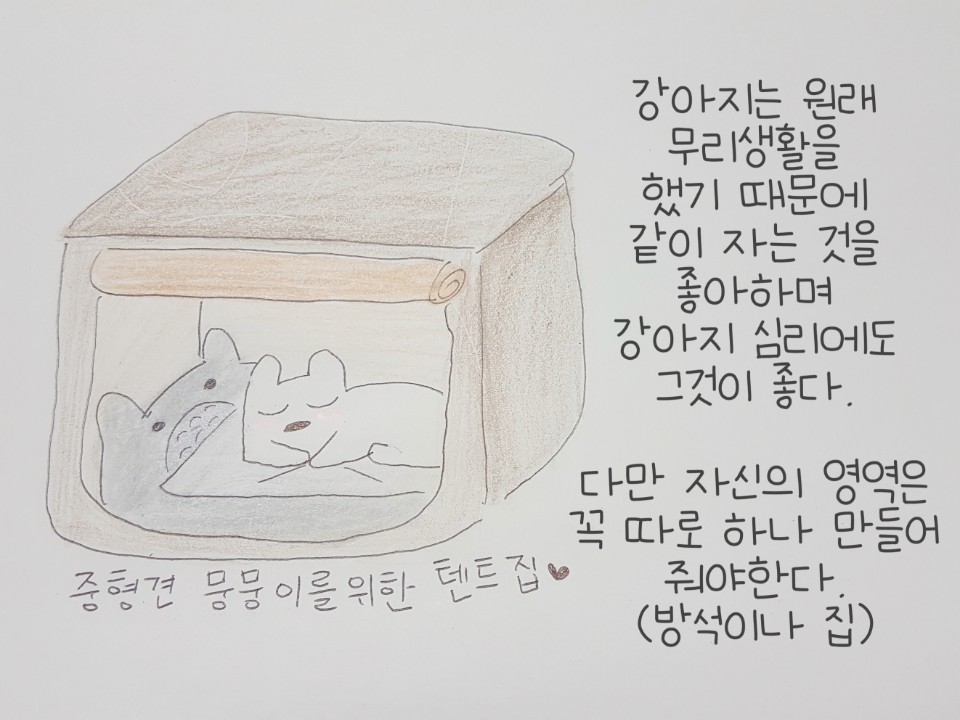 강아지는 원래
무리생활을
했기 때문에
같이 자는 것을
좋아하며
강아지 심리에도
그것이 좋다.
다만 자신의 영역은
꼭 따로 하나 만들어
줘야한다.
(방석이나 집)
중형견 뭉뭉이를위한 텐트집